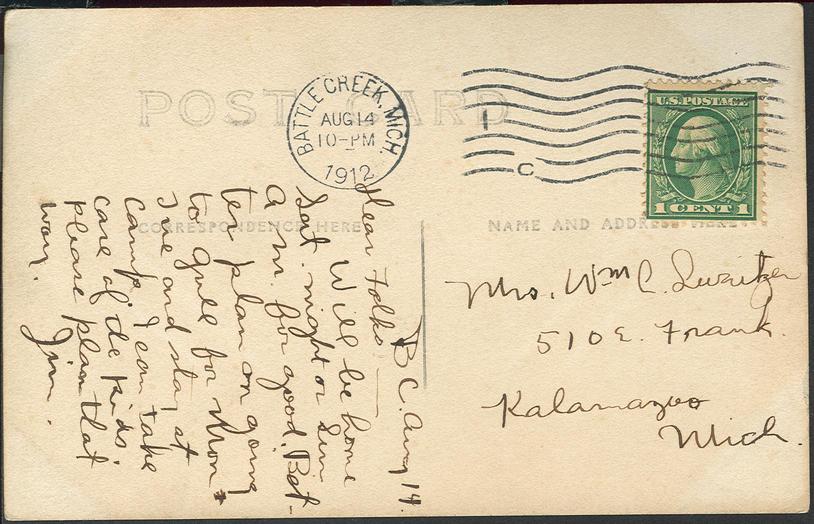 POST CARD
BATTLE CREEK, MICH.
AUG 14
10-PM
1912
C
U.S. POSTAGE
1 CENT 1
CORRESPONDENCE HERE
NAME AND ADDRESS HERE
B C. Aug 14.
Dear Folks:—
Will be home
Sat. night or Sun
a.m. for good. Bet-
ter plan on going
to Gull for Mon +
Tue and stay at
Camp. I can take
care of de kids.
Please plan that
way.
Jim.
Mrs. Wm C. Switzer
510 E. Frank.
Kalamazoo
Mich.